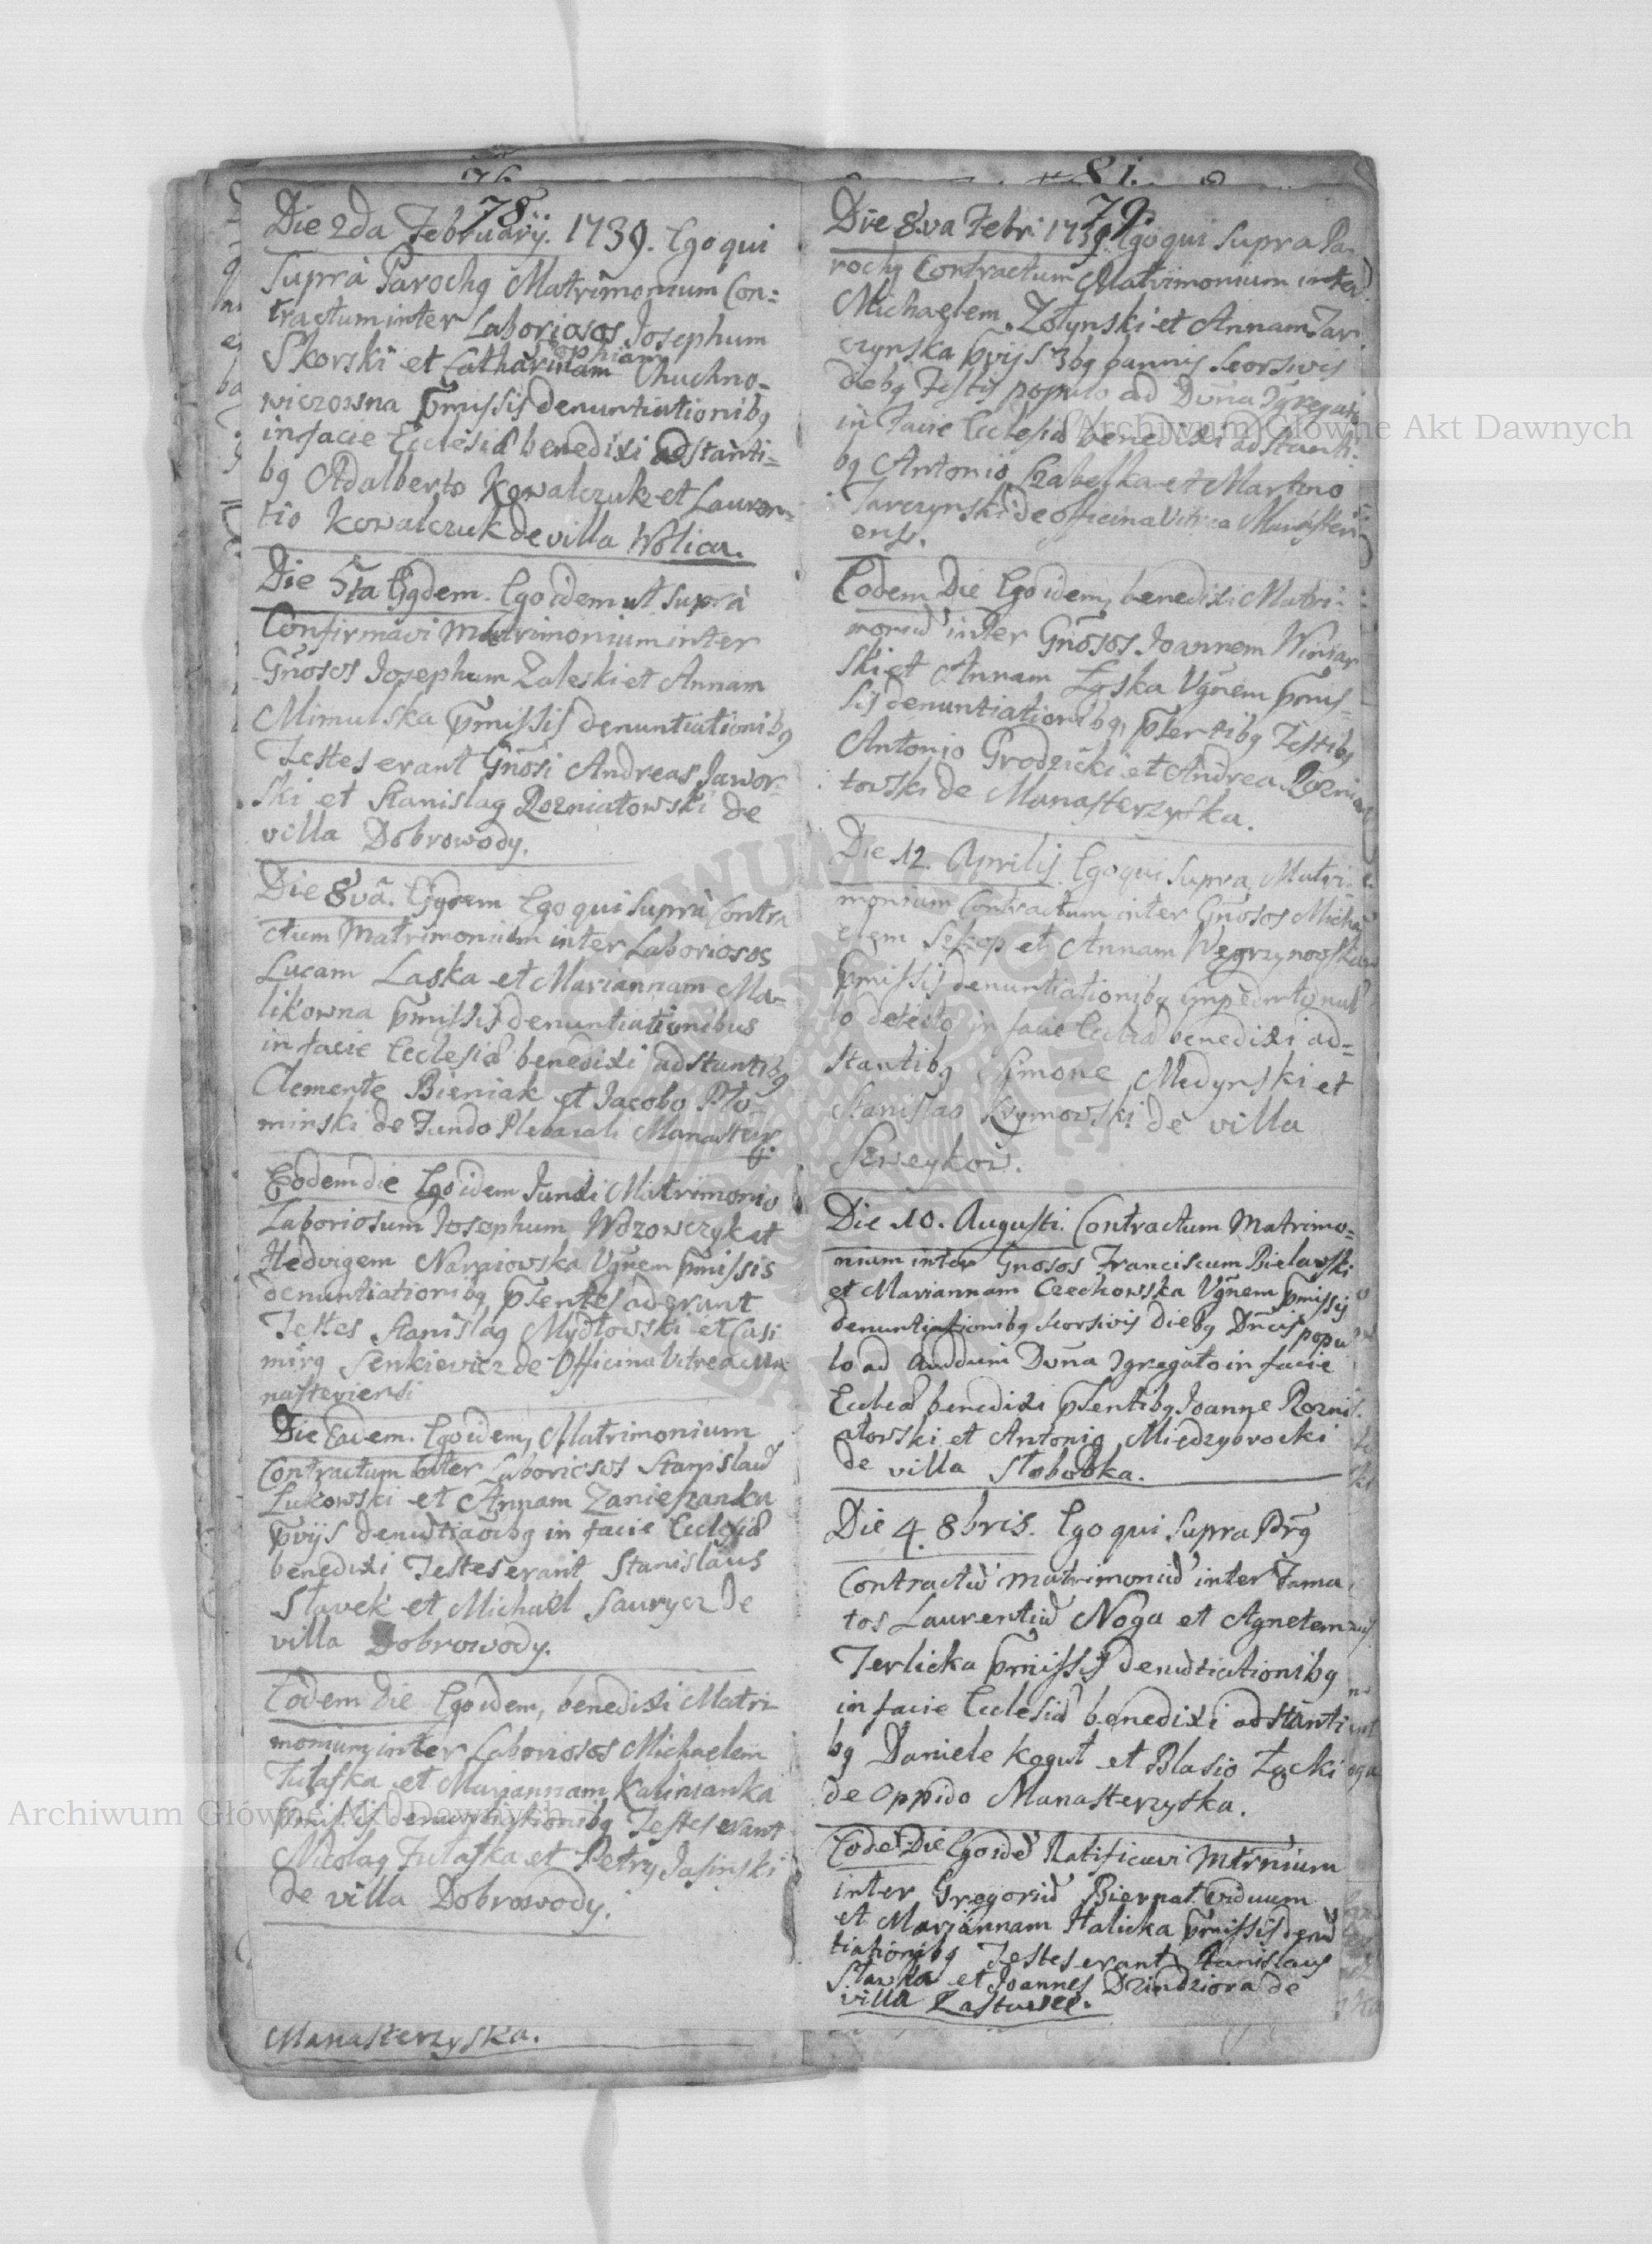 78
Die 2da Februarÿ. 1739. Ego qui
supra Parochg Matrimonium Con=
tractum inter Laboriosos Josephum
Skorski et Catharinam Sophiam Chuchno-
wiczowna pmissis denuntiationibg
in facie Ecclesia benedixi adstanti=
bg Adalberto Kowalczuk et Lauren=
tio Kowalczuk de villa Wolica.
Die 5ta Ejgdem. Ego idem ut supra
Confirmavi Matrimonium inter
Gnosos Josephum Zaleski et Annam
Mimulska pmissis denuntiationibg
Testes erant Gnosi Andreas Jawor-
ski et Stanislag Rozniatowski de
villa Dobrowody.
Die 8va. Ejgdem Ego qui supra Contra
ctum Matrimonium inter Laboriosos
Lucam Laska et Mariannam Ma-
likowna pmissis denuntiationibus
in facie Ecclesia benedixi adstantibg
Clemente Bieniak et Jacobo Plo-
minski de Fundo Plebaiali Manaster.
Eodem die Ego idem Junxi Matrimonio
Laboriosum Josephum Wdzowczyk et
Hedvigem Narajowska Vgnem pmissis
denuntiationibg psentes aderant
Testes Stanislag Mydlowski et Casi
mirg Senkievicz de Officina Vitrea Ma
nasteriensi
Die Eadem. Ego idem, Matrimonium
Contractum inter Laboriosos Stanislau
Lukowski et Annam Zanieszanka
pvijs denutiaoibg in facie Ecclesia
benedixi Testes erant Stanislaus
Slavek et Michael Saurycz de
villa Dobrowody.
Eodem die Ego idem, benedixi Matri-
monium inter Laboriosos Michaelem
Tutaska et Mariannam Kalinianka
pmissis denuntiationibg Testes erant
Nicolag Tutaska et Petrg Jasinski
de villa Dobrowody.
Manasterzyska.
81.
79.
Die 8va Febr. 1739. Ego qui supra Pa-
rochg Contractum Matrimonium inter
Michaelem Zolynski et Annam Jar
czynska pvijs 3bg bannis seorsivis
diebg Festis populo ad Duna 9gregato
in facie Ecclesia benedixi adstanti-
bg Antonio Czabelka et Martino
Jarczynski de officina Vitrea Manasteri
ens.
Eodem Die Ego idem, benedixi Matri-
moniu inter Gnosos Joannem Winiar
ski et Annam Lyska Vgnem pmis-
sis denuntiationibg, psentibg Testibg
Antonio Grodzicki et Andrea Roznia
towski de Manasterzyska.
Die 12. Aprilis Ego qui supra Matri-
monium Contractum inter Gnosos Micha
elem Sekop et Annam Wegrzynowska
pmissis denuntiationibg impedmto nul
lo detecto in facie Ecclea benedixi ad=
stantibg Simone Medynski et
Stanislao Krymowski de villa
Szweykow.
Die 10. Augusti. Contractum Matrimo=
nium inter Gnosos Franciscum Bielawski
et Mariannam Czechowska Vgnem pmissis
denuntiationibg seorsivis diebg Dncis popu
lo ad Duna 9gregato in facie
Ecclea benedixi psentibg Joanne Rozni
atowski et Antonio Miedzybrocki
de villa Slobodka.
Die 4. 8bris. Ego qui supra Prg
Contractu matrimoniu inter Fama
tos Laurentiu Noga et Agnetem
Terlicka pmissis denutiationibg
in facie Ecclesia benedixi adstanti
bg Daniele Kogut et Blasio Lacki
de Oppido Manasterzyska.
Eode Die Ego ide Ratificavi Mtrnium
inter Gregoriu Biernat viduum
et Mariannam Halicka pmissis denu
tiationibg Testes erant Stanislaus
Slawka et Joannes Dzindziora de
villa Zastawce.
Archiwum Główne Akt Dawnych
Archiwum Główne Akt Dawnych